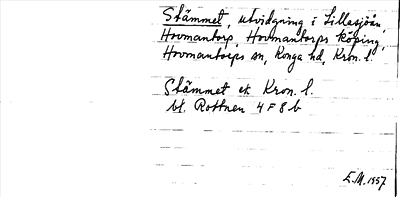 Stämmet, utvidgning i Lillasjöån,
Hovmantorp, Hovmantorps köping,
Hovmantorps sn, Konga hd, Kron. l.
Stämmet ek Kron. l.
bl. Rottnen 4 F 8 b
E.M. 1957